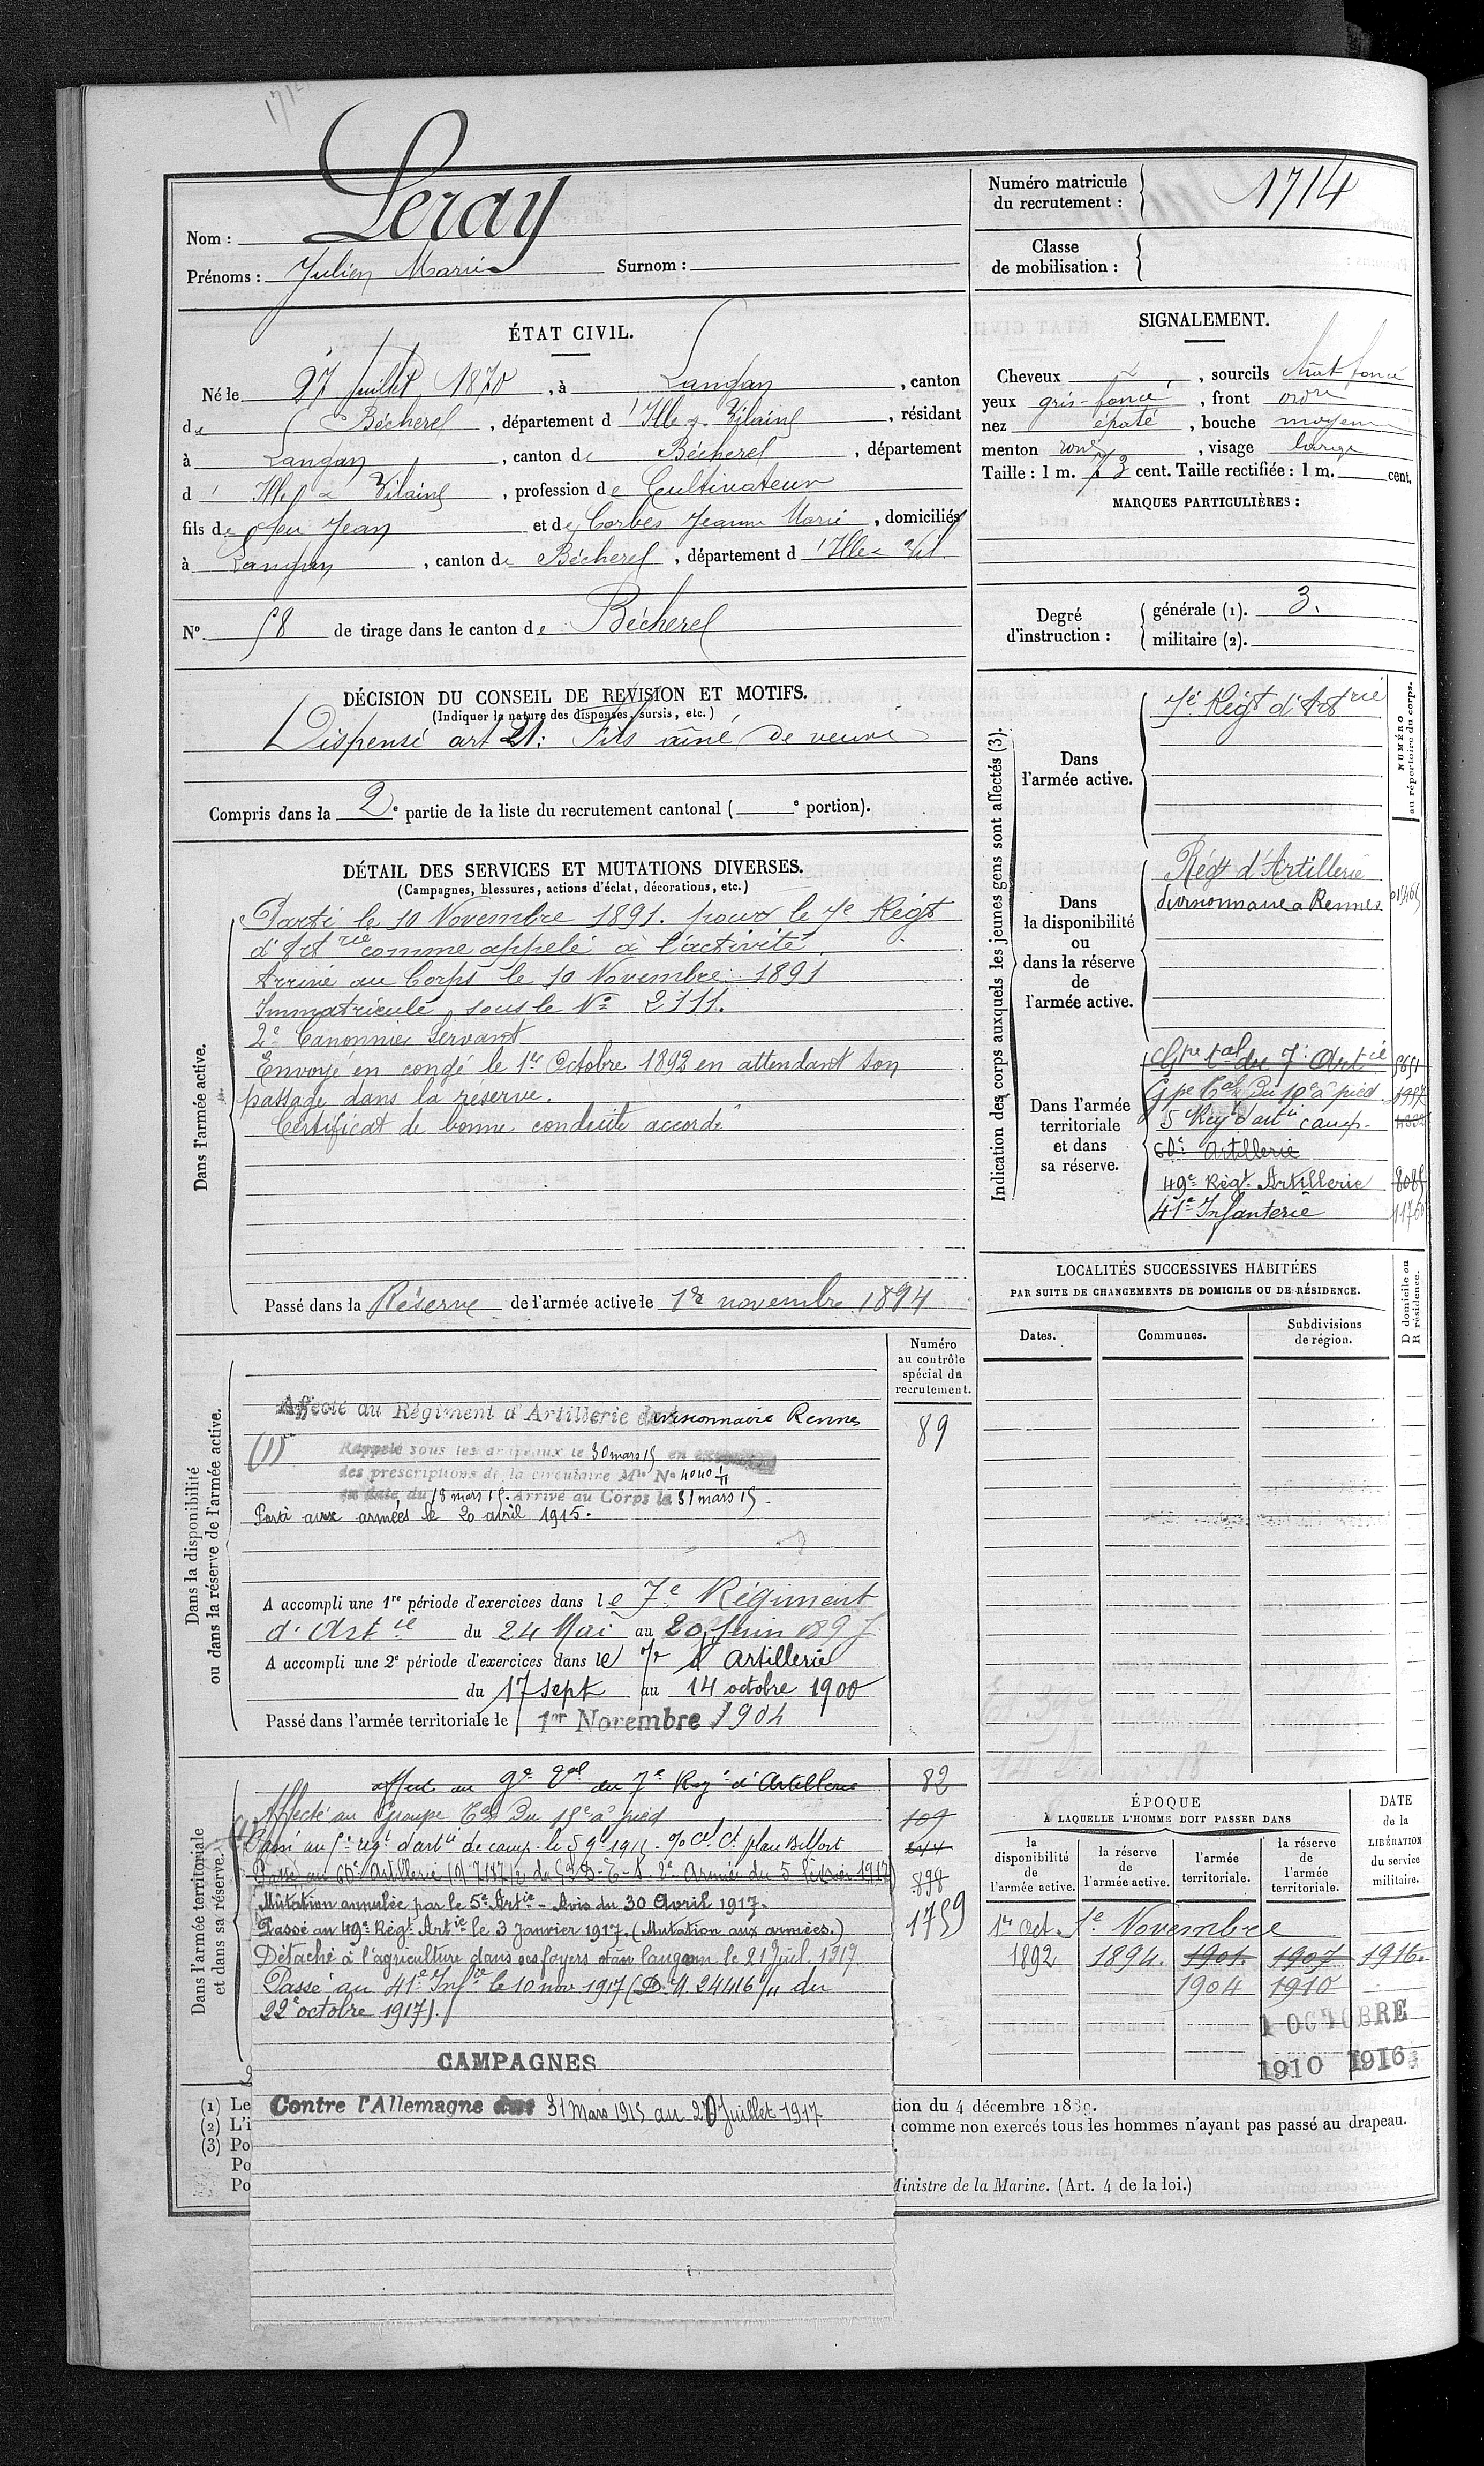 Leray
Nom :
Prénoms : Julien Marie Surnom :
Numéro matricule
du recrutement : 1714
Classe
de mobilisation :
ÉTAT CIVIL.
Né le 27 Juillet 1870, à Langan, canton
de Bécherel, département d'Ille & Vilaine, résidant
à Langan, canton de Bécherel, département
d' Ille & Vilaine, profession de Cultivateur
fils de feu Jean et de Corbes Jeanne Marie, domiciliés
à Langan, canton de Bécherel, département d'Ille & Vil
N° 58 de tirage dans le canton de Bécherel
SIGNALEMENT.
Cheveux, sourcils chât foncé
yeux gris-foncé, front ordre
nez épaté, bouche moyenne
menton rond, visage large
Taille : 1 m. 73 cent. Taille rectifiée : 1 m. cent.
MARQUES PARTICULIÈRES :
Degré
d'instruction :
générale (1). 3.
militaire (2).
DÉCISION DU CONSEIL DE REVISION ET MOTIFS.
(Indiquer la nature des dispenses, sursis, etc.)
Dispensé art 21: Fils aîné de veuve
Compris dans la 2e partie de la liste du recrutement cantonal ( e portion).
DÉTAIL DES SERVICES ET MUTATIONS DIVERSES.
(Campagnes, blessures, actions d'éclat, décorations, etc.)
Dans l'armée active.
Parti le 10 Novembre 1891. pour le 7e Régt
d'Art rie comme appelé à l'activité
Arrivé au Corps le 10 Novembre 1891
Immatriculé sous le No 2111.
2e Canonnier Servant
Envoyé en congé le 1er Octobre 1892 en attendant son
passage dans la réserve.
Certificat de bonne conduite accordé
Passé dans la Réserve de l'armée active le 1er novembre 1894
Indication des corps auxquels les jeunes gens sont affectés (3).
NUMÉRO
au répertoire du corps.
Dans
l'armée active.
7e Régt d'Art rie
Dans
la disponibilité
ou
dans la réserve
de
l'armée active.
Régt d'Artillerie
divisionnaire à Rennes
Dans l'armée
territoriale
et dans
sa réserve.
Gpe tal du 7e Art ie
Gpe Tal du 10e à pied
5e Reg d'art ie camp.
60e Artillerie
49e Régt Artillerie
41e Infanterie
LOCALITÉS SUCCESSIVES HABITÉES
PAR SUITE DE CHANGEMENTS DE DOMICILE OU DE RÉSIDENCE.
Dates.
Communes.
Subdivisions
de région.
D domicile ou
R résidence.
Dans la disponibilité
ou dans la réserve de l'armée active.
Numéro
au contrôle
spécial du
recrutement.
Affecté au Régiment d'Artillerie divisionnaire Rennes
89
(1) Rappelé sous les drapeaux le 30 mars 15 en
des prescriptions de la circulaire Mlle No 4040 1/11
en date du 18 mars 15. Arrivé au Corps le 31 mars 15.
Parti aux armées le 20 avril 1915.
A accompli une 1re période d'exercices dans le 7e Régiment
d'Art ie du 24 Mai au 20 Juin 1897
A accompli une 2e période d'exercices dans le 7e d'Artillerie
du 17 sept au 14 octobre 1900
Passé dans l'armée territoriale le 1er Novembre 1904
Dans l'armée territoriale
et dans sa réserve.
affecté au Ge Tal du 7e Reg t d'Artillerie 82
Affecté au Groupe Tal du à pied 109
Passé au 5e régt d'art ie de camp. le 5 9e 1915. place Belfort
Passé au 60e Artillerie Armée du 5 février 1917 898
Mutation annulée par le 5e Art ie - Avis du 30 Avril 1917.
Passé au 49e Régt Art ie le 3 Janvier 1917. (Mutation aux armées.) 1759
Détaché à l'agriculture dans ses foyers à Langan le 21 Juil. 1917.
Passé au 41e Inf ie le 10 nov 1917 (D. M. 24416 1/11 du
22 octobre 1917).
CAMPAGNES
Contre l'Allemagne du 31 Mars 1915 au 20 Juillet 1917
ÉPOQUE
À LAQUELLE L'HOMME DOIT PASSER DANS
la
disponibilité
de
l'armée active.
la réserve
de
l'armée active.
l'armée
territoriale.
la réserve
de
l'armée
territoriale.
DATE
de la
LIBÉRATION
du service
militaire.
1er Oct. 1er Novembre
1892 1894. 1901. 1907 1916.
1904 1910
1 OCTOBRE
1910 1916
(1) Le
(2) L'i
(3) Po
Po
Po
tion du 4 décembre 1889.
comme non exercés tous les hommes n'ayant pas passé au drapeau.
Ministre de la Marine. (Art. 4 de la loi.)